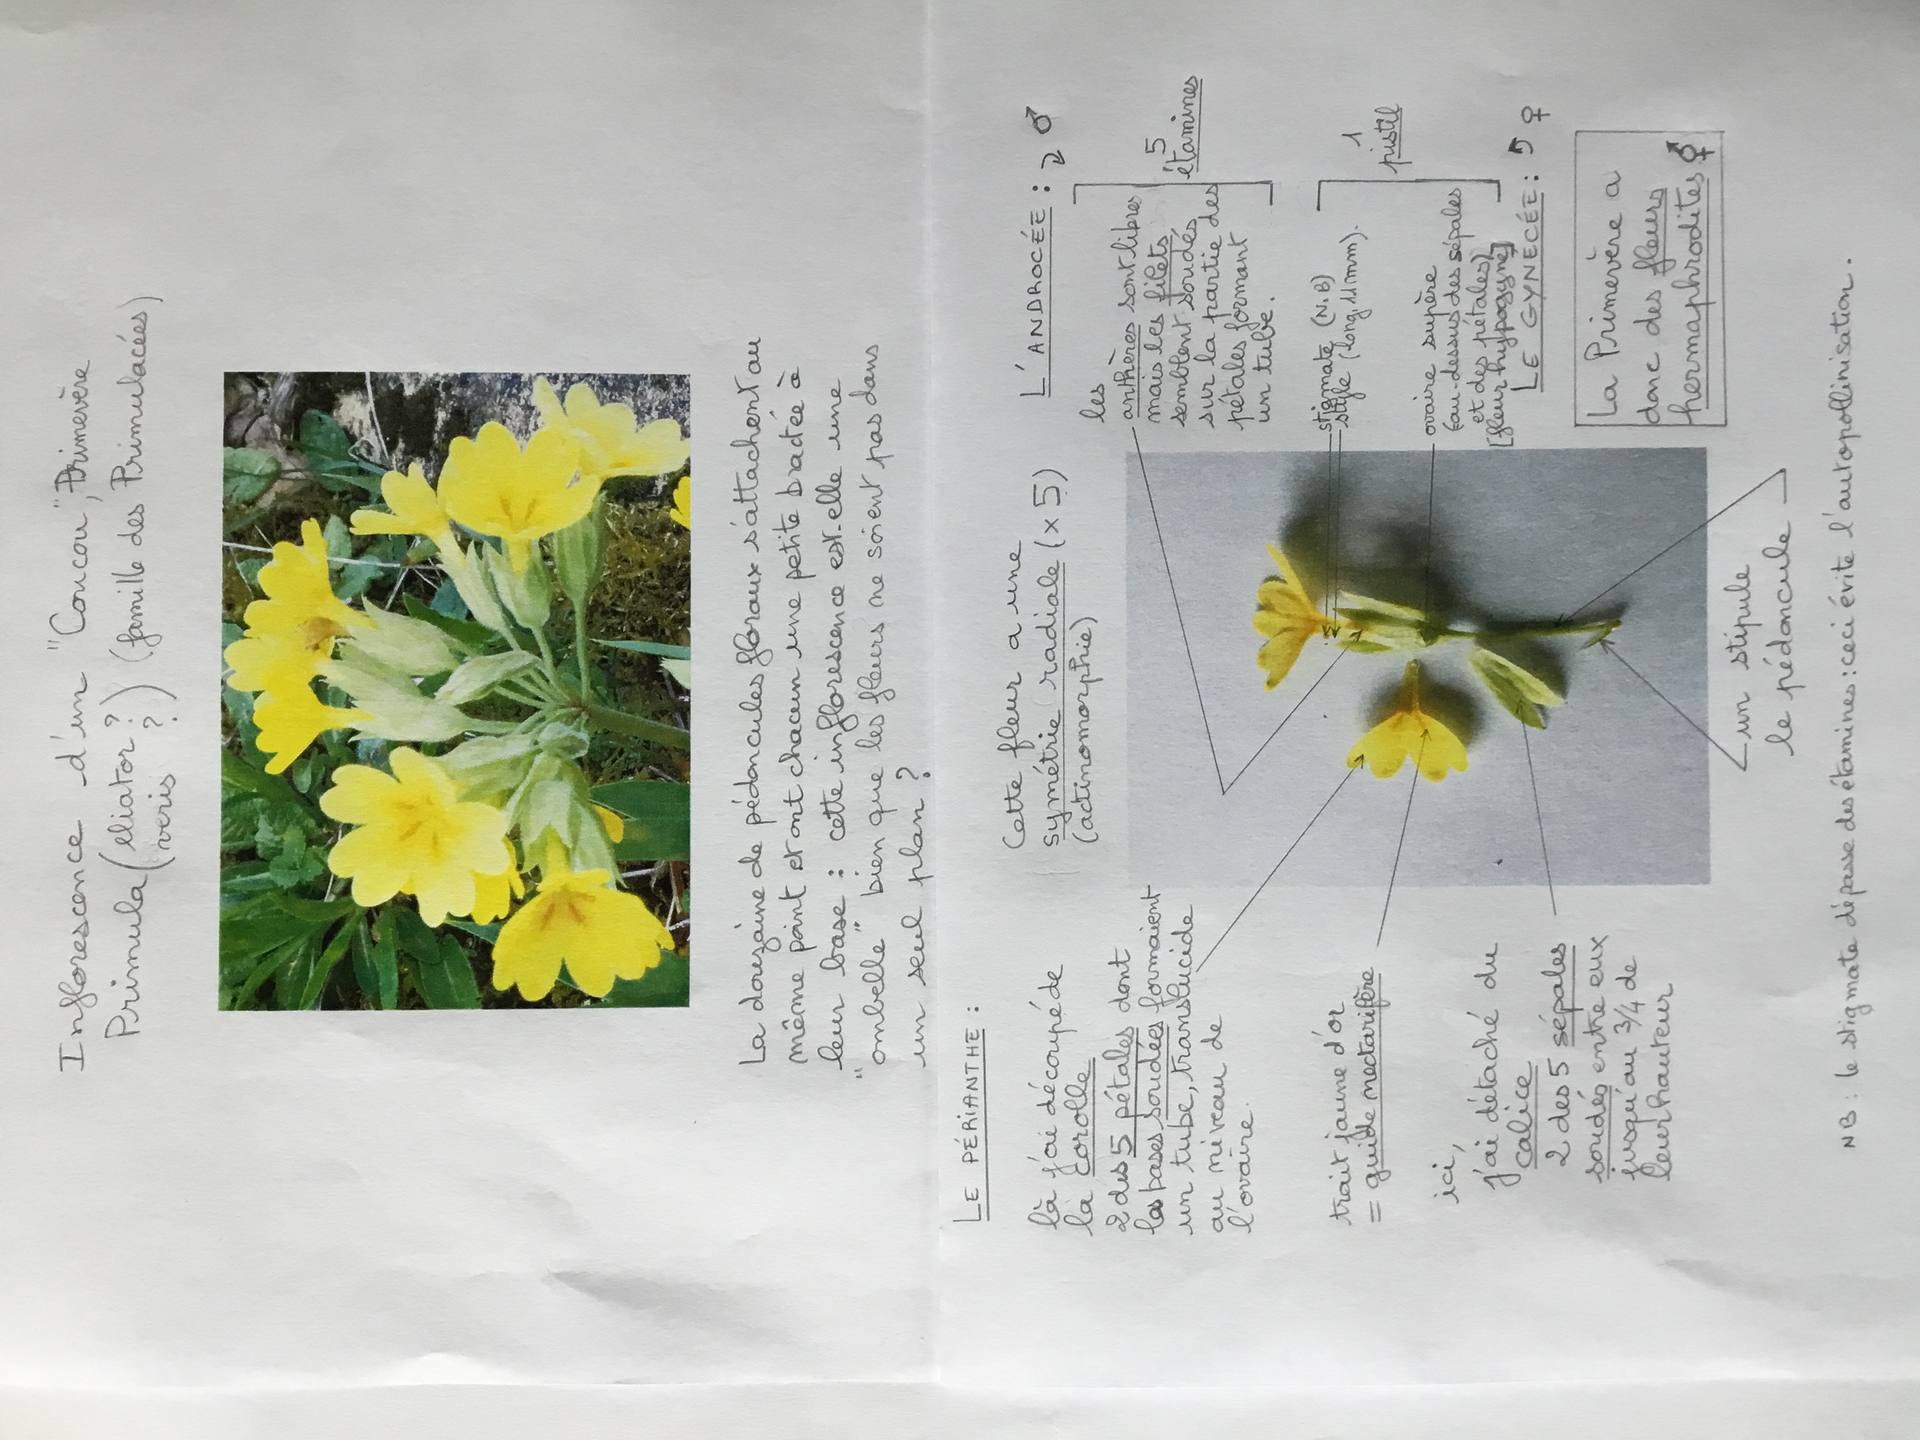 Inflorescence d'un "Coucou", Primevère
Primula (eliator ?) (famille des Primulacées)
(veris ?)
La douzaine de pédoncules floraux s'attachent au
même point et ont chacun une petite bractée à
leur base : cette inflorescence est-elle une
"ombelle" bien que les fleurs ne soient pas dans
un seul plan ?
LE PÉRIANTHE :
là j'ai découpé de
la corolle
2 des 5 pétales dont
les bases soudées formaient
un tube, translucide
au niveau de
l'ovaire.
trait jaune d'or
= guide nectarifère
ici,
j'ai détaché du
calice
2 des 5 sépales
soudés entre eux
jusqu'au 3/4 de
leur hauteur
Cette fleur a une
symétrie radiale (x 5)
(actinomorphie)
L'ANDROCÉE : ♂
les
anthères sont libres
mais les filets
semblent soudés
sur la partie des
pétales formant
un tube.
5
étamines
stigmate (N.B)
style (long. 11mm).
ovaire supère
(au-dessus des sépales
et des pétales)
[fleur hypogyne]
1
pistil
LE GYNECÉE : ♀
La Primevère a
donc des fleurs
hermaphrodites ⚥
un stipule
le pédoncule
NB : le stigmate dépasse des étamines : ceci évite l'autopollinisation.